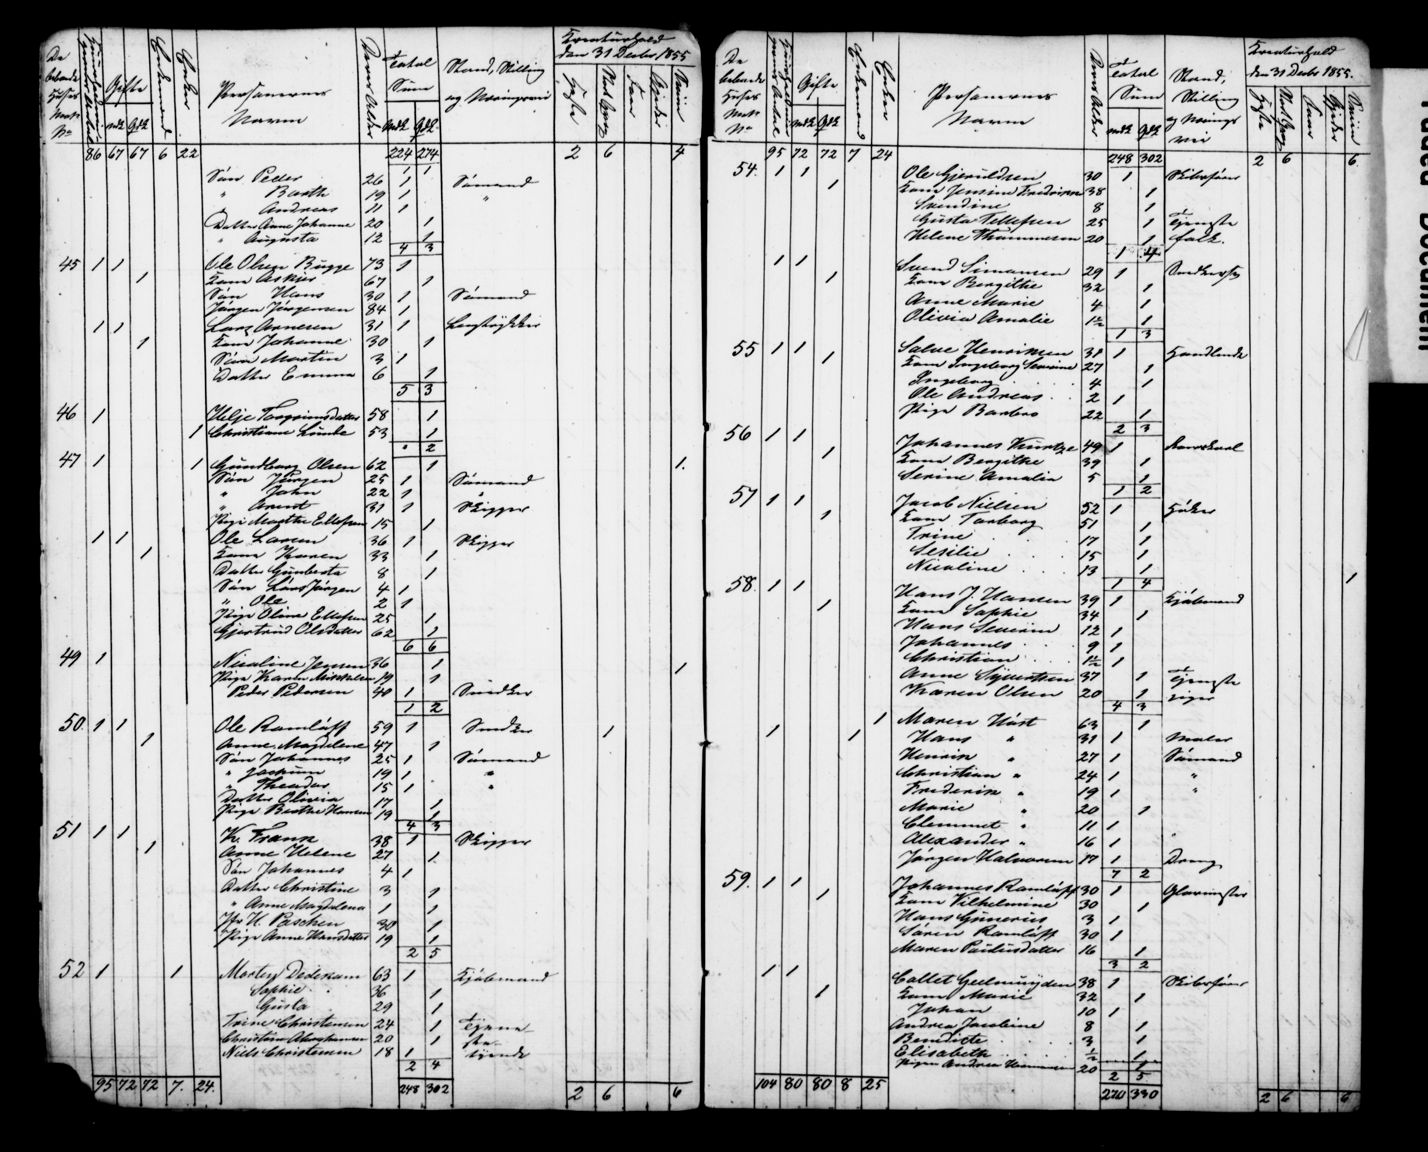 Personernes Navn
Stand, Stilling og Næringsvei
Creaturhold den 31 Decbr 1855
86 67 67 6 22 224 274 2 6 4
Søn Peder 26 1 Sømand
" Barth 19 1 "
" Andreas 11 1
Datter Anne Johanne 20 1
" Augusta 12 1
4 3
45 1 1 Ole Olsen Bugge 73 1
1 67 1
Søn Hans 30 1 Sømand
Jørgen Jørgensen 84 1
1 1 Lars Arnesen 31 1
1 Kone Johanne 30 1
Søn Martin 3 1
Datter Emma 6 1
5 3
46 1 Helje Torgrimsdatter 58 1
1 Christiane Lunde 53 1
" 2
47 1 1 Gundborg Olsen 62 1 1
Søn Jørgen 25 1 Sømand
" John 22 1 "
" Arent 31 1 Skipper
Pige Marthe Ellefsen 15 1
1 1 Ole Larsen 36 1 Skipper
1 Kone Karen 33 1
Datter 8 1
Søn Lars Jørgen 4 1
" Ole 2 1
Pige Oline Ellefsen 25 1
Gjertrud Olsdatter 62 1
6 6
49 1 Nicoline Jensen 36 1 1
Pige Karen 19 1
Peder Pedersen 40 1 Snedker
1 2
50 1 1 Ole Ramløff 59 1 Snedker 1
1 Anne Magdelene 47 1
Søn Johannes 25 1 Sømand
" Jochum 19 1 "
" Theodor 15 1 "
Datter Olivia 17 1
Pige Berthe Hansen 19 1
4 3
51 1 1 38 1 Skipper
1 Anne Helene 27 1
Søn Johannes 4 1
Datter Christine 3 1
" Anne Magdalena 1 1
H. Paschen 30 1
Pige Anne Hansdatter 19 1
2 5
52 1 1 Morten Dedekam 63 1 Kjøbmand
Sophie 36 1
Gusta 29 1
Trine Christensen 24 1 Tjene-
Christine 20 1 ste-
Niels Christensen 18 1 tyende
2 4
95 72 72 7 24 248 302 2 6 6
Personernes Navn
Stand, Stilling og Nærings vei
Creaturhold den 31 Decbr 1855
95 72 72 7 24 248 302 2 6 6
54 1 1 Ole Gjeruldsen 30 1 Skibsfører
1 Kone Jensine Fredrikke 38 1
Svendine 8 1
Gusta Tellefsen 25 1 Tjeneste
Helene Thommesen 20 1 folk
1 4
1 1 Svend Simonsen 29 1
1 Kone Bergithe 32 1
Anne Marie 4 1
Olivia Amalie 1½ 1
1 3
55 1 1 Salve Henriksen 31 1 Handlende
1 Kone Ingeborg Severine 27 1
Ingeborg 4 1
Ole Andreas 2 1
Pige Barbro 22 1
2 3
56 1 1 Johannes 49 1
1 Kone Bergithe 39 1
Serine Amalia 5 1
1 2
57 1 1 Jacob Nielsen 52 1 Høker
1 Kone Torborg 51 1
Trine 17 1
Sesilie 15 1
Nicoline 13 1 1
1 4
58 1 1 Hans J. Hansen 39 1 Kjøbmand
1 Kone Sophie 34 1
Hans Severin 12 1
Johannes 9 1
Christian 1½ 1
Anne Syvertsen 37 1 Tjeneste
Karen Olsen 20 1 piger
4 3
1 Maren Høst 63 1
1 1 Hans " 31 1 Maler
Henrik " 27 1 Sømand
Christian " 24 1 "
Frederik " 19 1 "
Marie " 20 1
Clemmet " 11 1
Alexander " 16 1
Jørgen Halvorsen 17 1 Dreng
7 2
59 1 1 Johannes Ramløff 30 1 Glarmester
1 Kone Vilhelmine 30 1
Hans Gunerius 3 1
Søren Ramløff 30 1
Maren Paulusdatter 16 1
3 2
1 1 Geelmuyden 38 1 Skibsfører
1 Kone Marie 32 1
Johan 10 1
Andrea Jacobine 8 1
Beneditte 3 1
Elisabeth ½ 1
Pigen Andrea 20 1
2 5
104 80 80 8 25 270 330 2 6 6